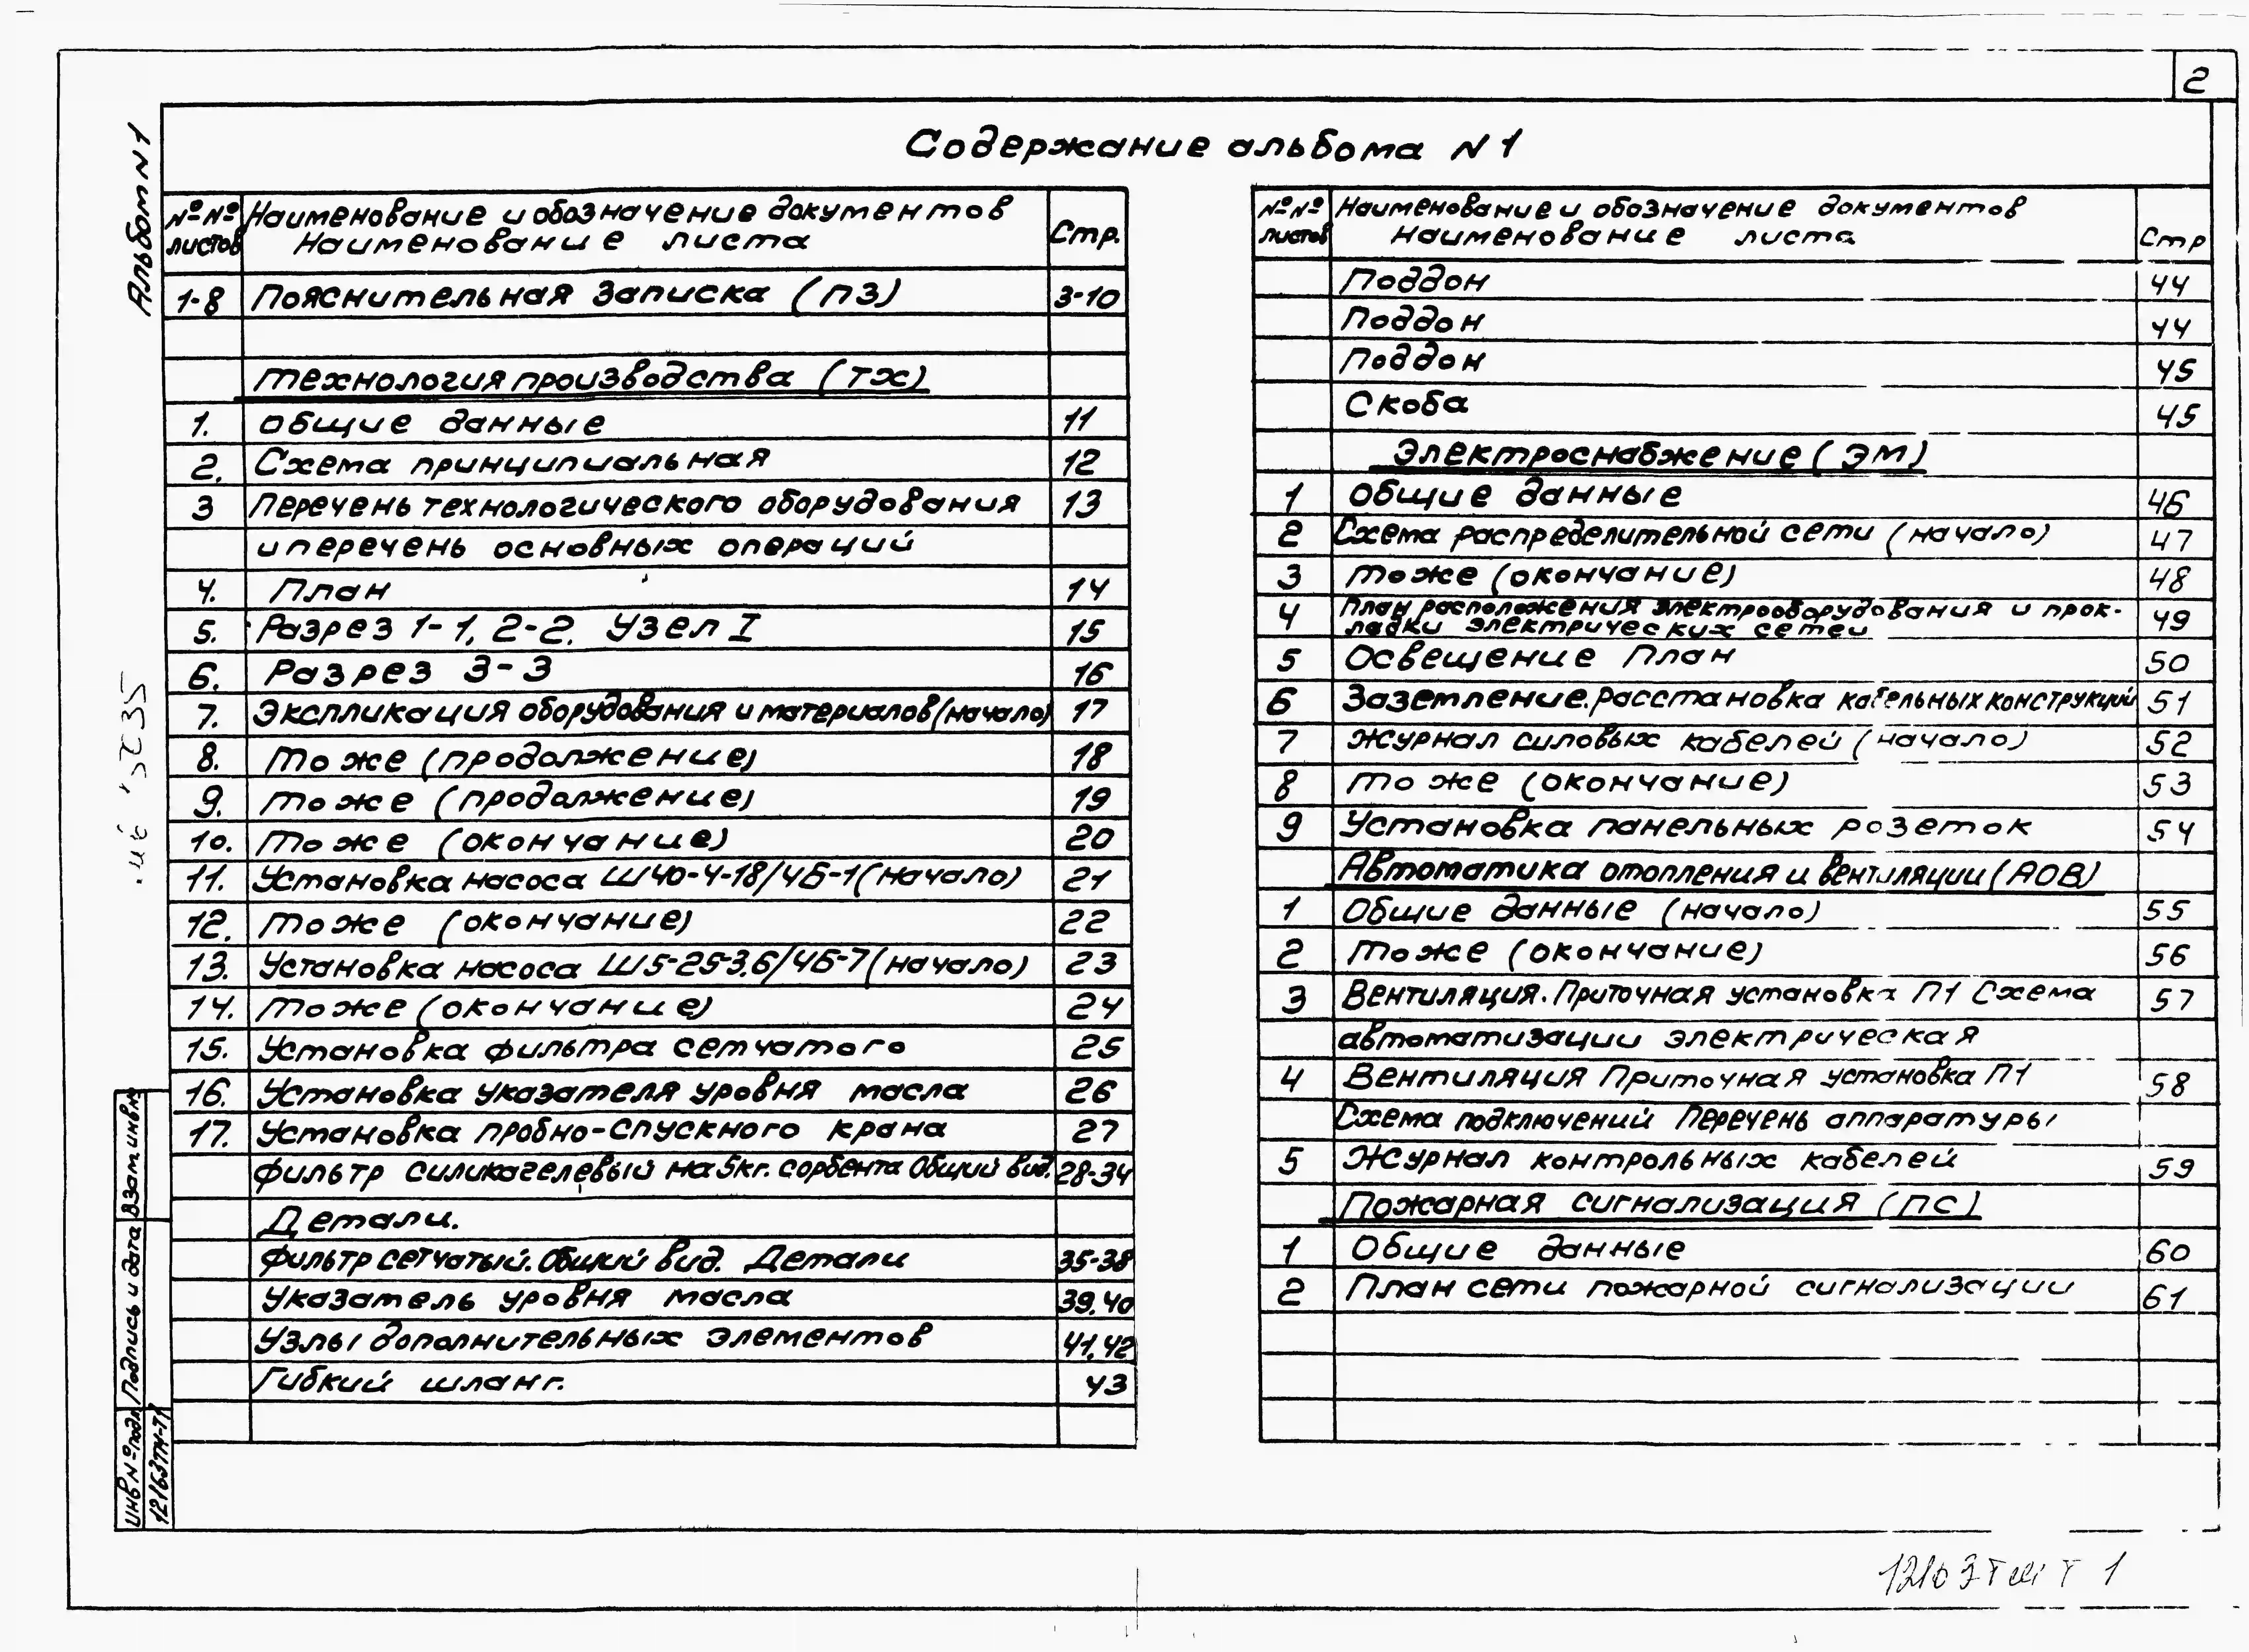 2
Содержание альбома N1
Альбом N1
№№ листов Наименование и обозначение документов Наименование листа Стр.
1-8 Пояснительная записка (ПЗ) 3-10
Технология производства (ТХ)
1. Общие данные 11
2. Схема принципиальная 12
3 Перечень технологического оборудования 13
и перечень основных операций
4. План 14
5. Разрез 1-1, 2-2. Узел I 15
6. Разрез 3-3 16
7. Экспликация оборудования и материалов (начало) 17
8. То же (продолжение) 18
9. То же (продолжение) 19
10. То же (окончание) 20
11. Установка насоса Ш40-4-18/4Б-1 (начало) 21
12. То же (окончание) 22
13. Установка насоса Ш5-25-3,6/4Б-7 (начало) 23
14. То же (окончание) 24
15. Установка фильтра сетчатого 25
16. Установка указателя уровня масла 26
17. Установка пробно-спускного крана 27
Фильтр силикагелевый на 5кг. сорбента Общий вид. 28-34
Детали.
Фильтр сетчатый. Общий вид. Детали 35-38
Указатель уровня масла 39,40
Узлы дополнительных элементов 41,42
Гибкий шланг. 43
№№ листов Наименование и обозначение документов Наименование листа Стр
Поддон 44
Поддон 44
Поддон 45
Скоба 45
Электроснабжение (ЭМ)
1 Общие данные 46
2 Схема распределительной сети (начало) 47
3 То же (окончание) 48
4 План расположения электрооборудования и прок- 49
ладки электрических сетей
5 Освещение План 50
6 Заземление. Расстановка кабельных конструкций 51
7 Журнал силовых кабелей (начало) 52
8 То же (окончание) 53
9 Установка панельных розеток 54
Автоматика отопления и вентиляции (АОВ)
1 Общие данные (начало) 55
2 То же (окончание) 56
3 Вентиляция. Приточная установка П1 Схема 57
автоматизации электрическая
4 Вентиляция Приточная установка П1 58
Схема подключений Перечень аппаратуры
5 Журнал контрольных кабелей 59
Пожарная сигнализация (ПС)
1 Общие данные 60
2 План сети пожарной сигнализации 61
Взам инв №
Подпись и дата
Инв № подл
12163тм-т1